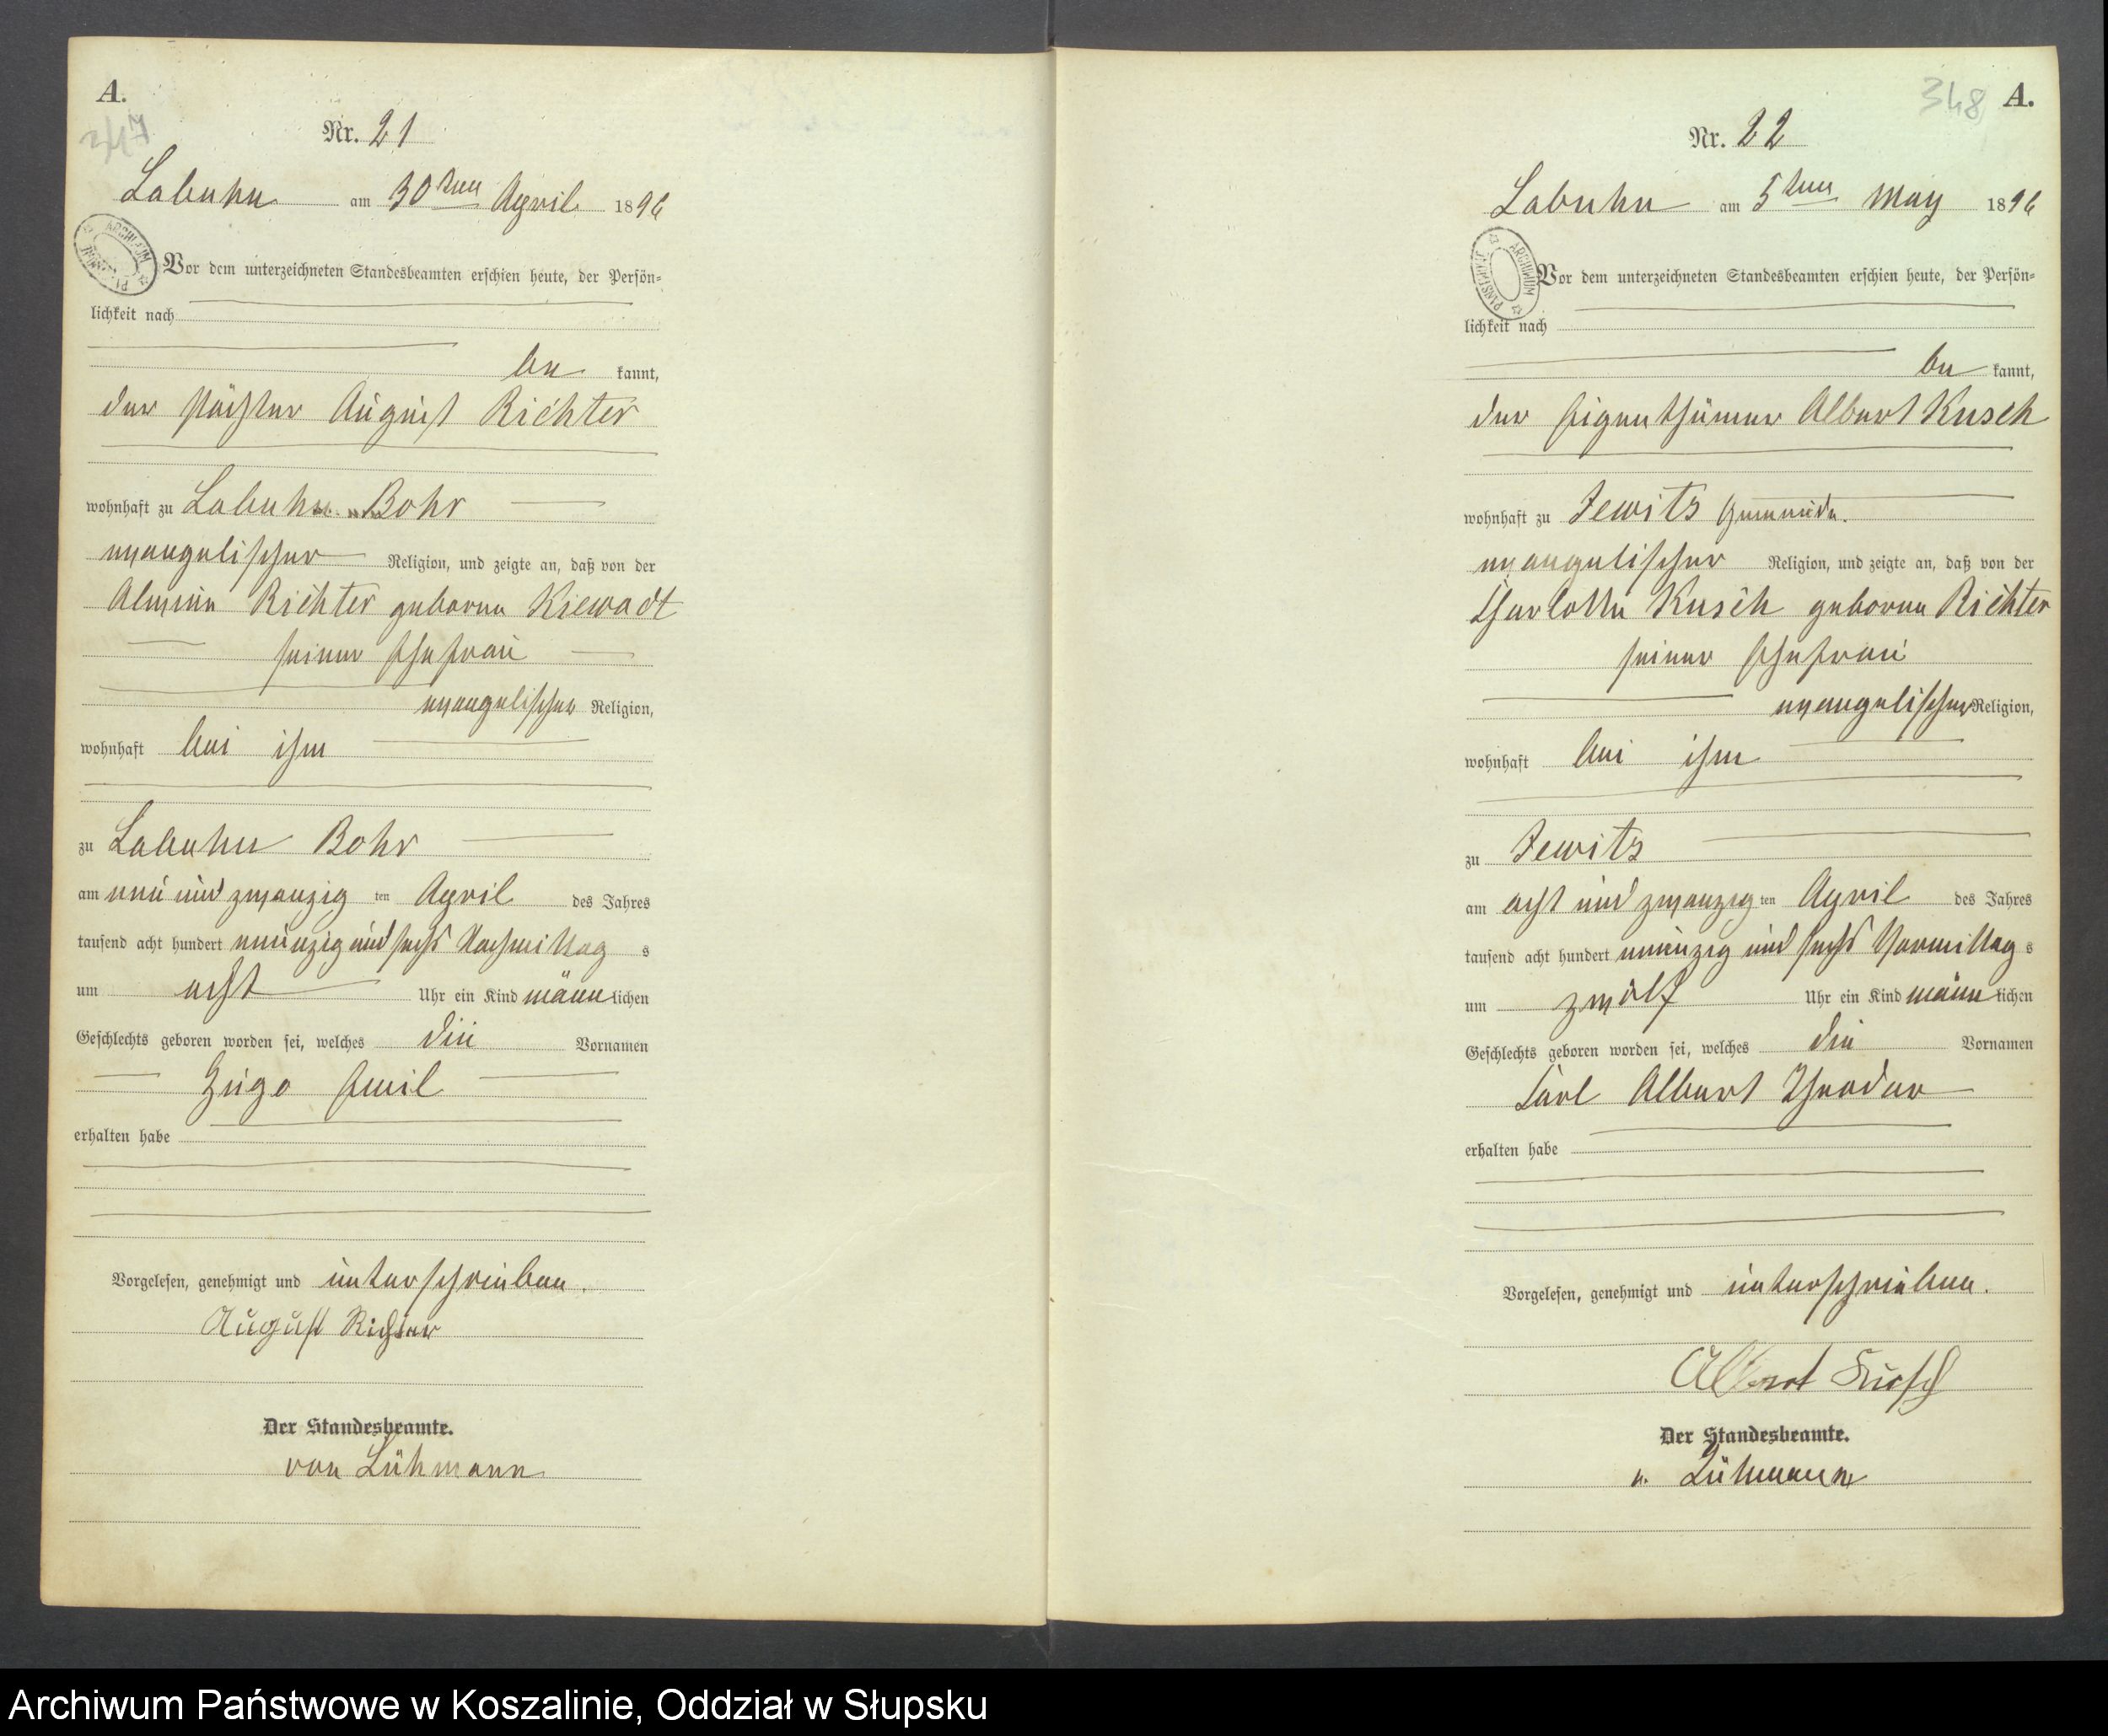 A.
347
Nr. 21
Labuhn am 30ten April 1896
Vor dem unterzeichneten Standesbeamten erschien heute, der Persön-
lichkeit nach
be kannt,
der Pächter August Richter
wohnhaft zu Labuhn Bohr
evangelischer Religion, und zeigte an, daß von der
Alwine Richter geborne Kiewadt
seiner Ehefrau
evangelischer Religion,
wohnhaft bei ihm
zu Labuhn Bohr
am neun und zwanzig ten April des Jahres
tausend acht hundert neunzig und sechs Nachmittag s
um acht Uhr ein Kind männ lichen
Geschlechts geboren worden sei, welches die Vornamen
Hugo Emil
erhalten habe
Vorgelesen, genehmigt und unterschrieben.
August Richter
Der Standesbeamte.
von Lühmann
348 A.
Nr. 22
Labuhn am 5ten May 1896
ARCHIWUM PAŃSTWOWE
Vor dem unterzeichneten Standesbeamten erschien heute, der Persön-
lichkeit nach
be kannt,
der Eigenthümer Albert Kusch
wohnhaft zu Jewitz Gemeinde.
evangelischer Religion, und zeigte an, daß von der
Charlotte Kusch geborne Richter
seiner Ehefrau
evangelischer Religion,
wohnhaft bei ihm
zu Jewitz
am acht und zwanzig ten April des Jahres
tausend acht hundert neunzig und sechs Vormittag s
um zwölf Uhr ein Kind männ lichen
Geschlechts geboren worden sei, welches die Vornamen
Carl Albert Theodor
erhalten habe
Vorgelesen, genehmigt und unterschrieben.
Albert Kusch
Der Standesbeamte.
v. Lühmann
Archiwum Państwowe w Koszalinie, Oddział w Słupsku